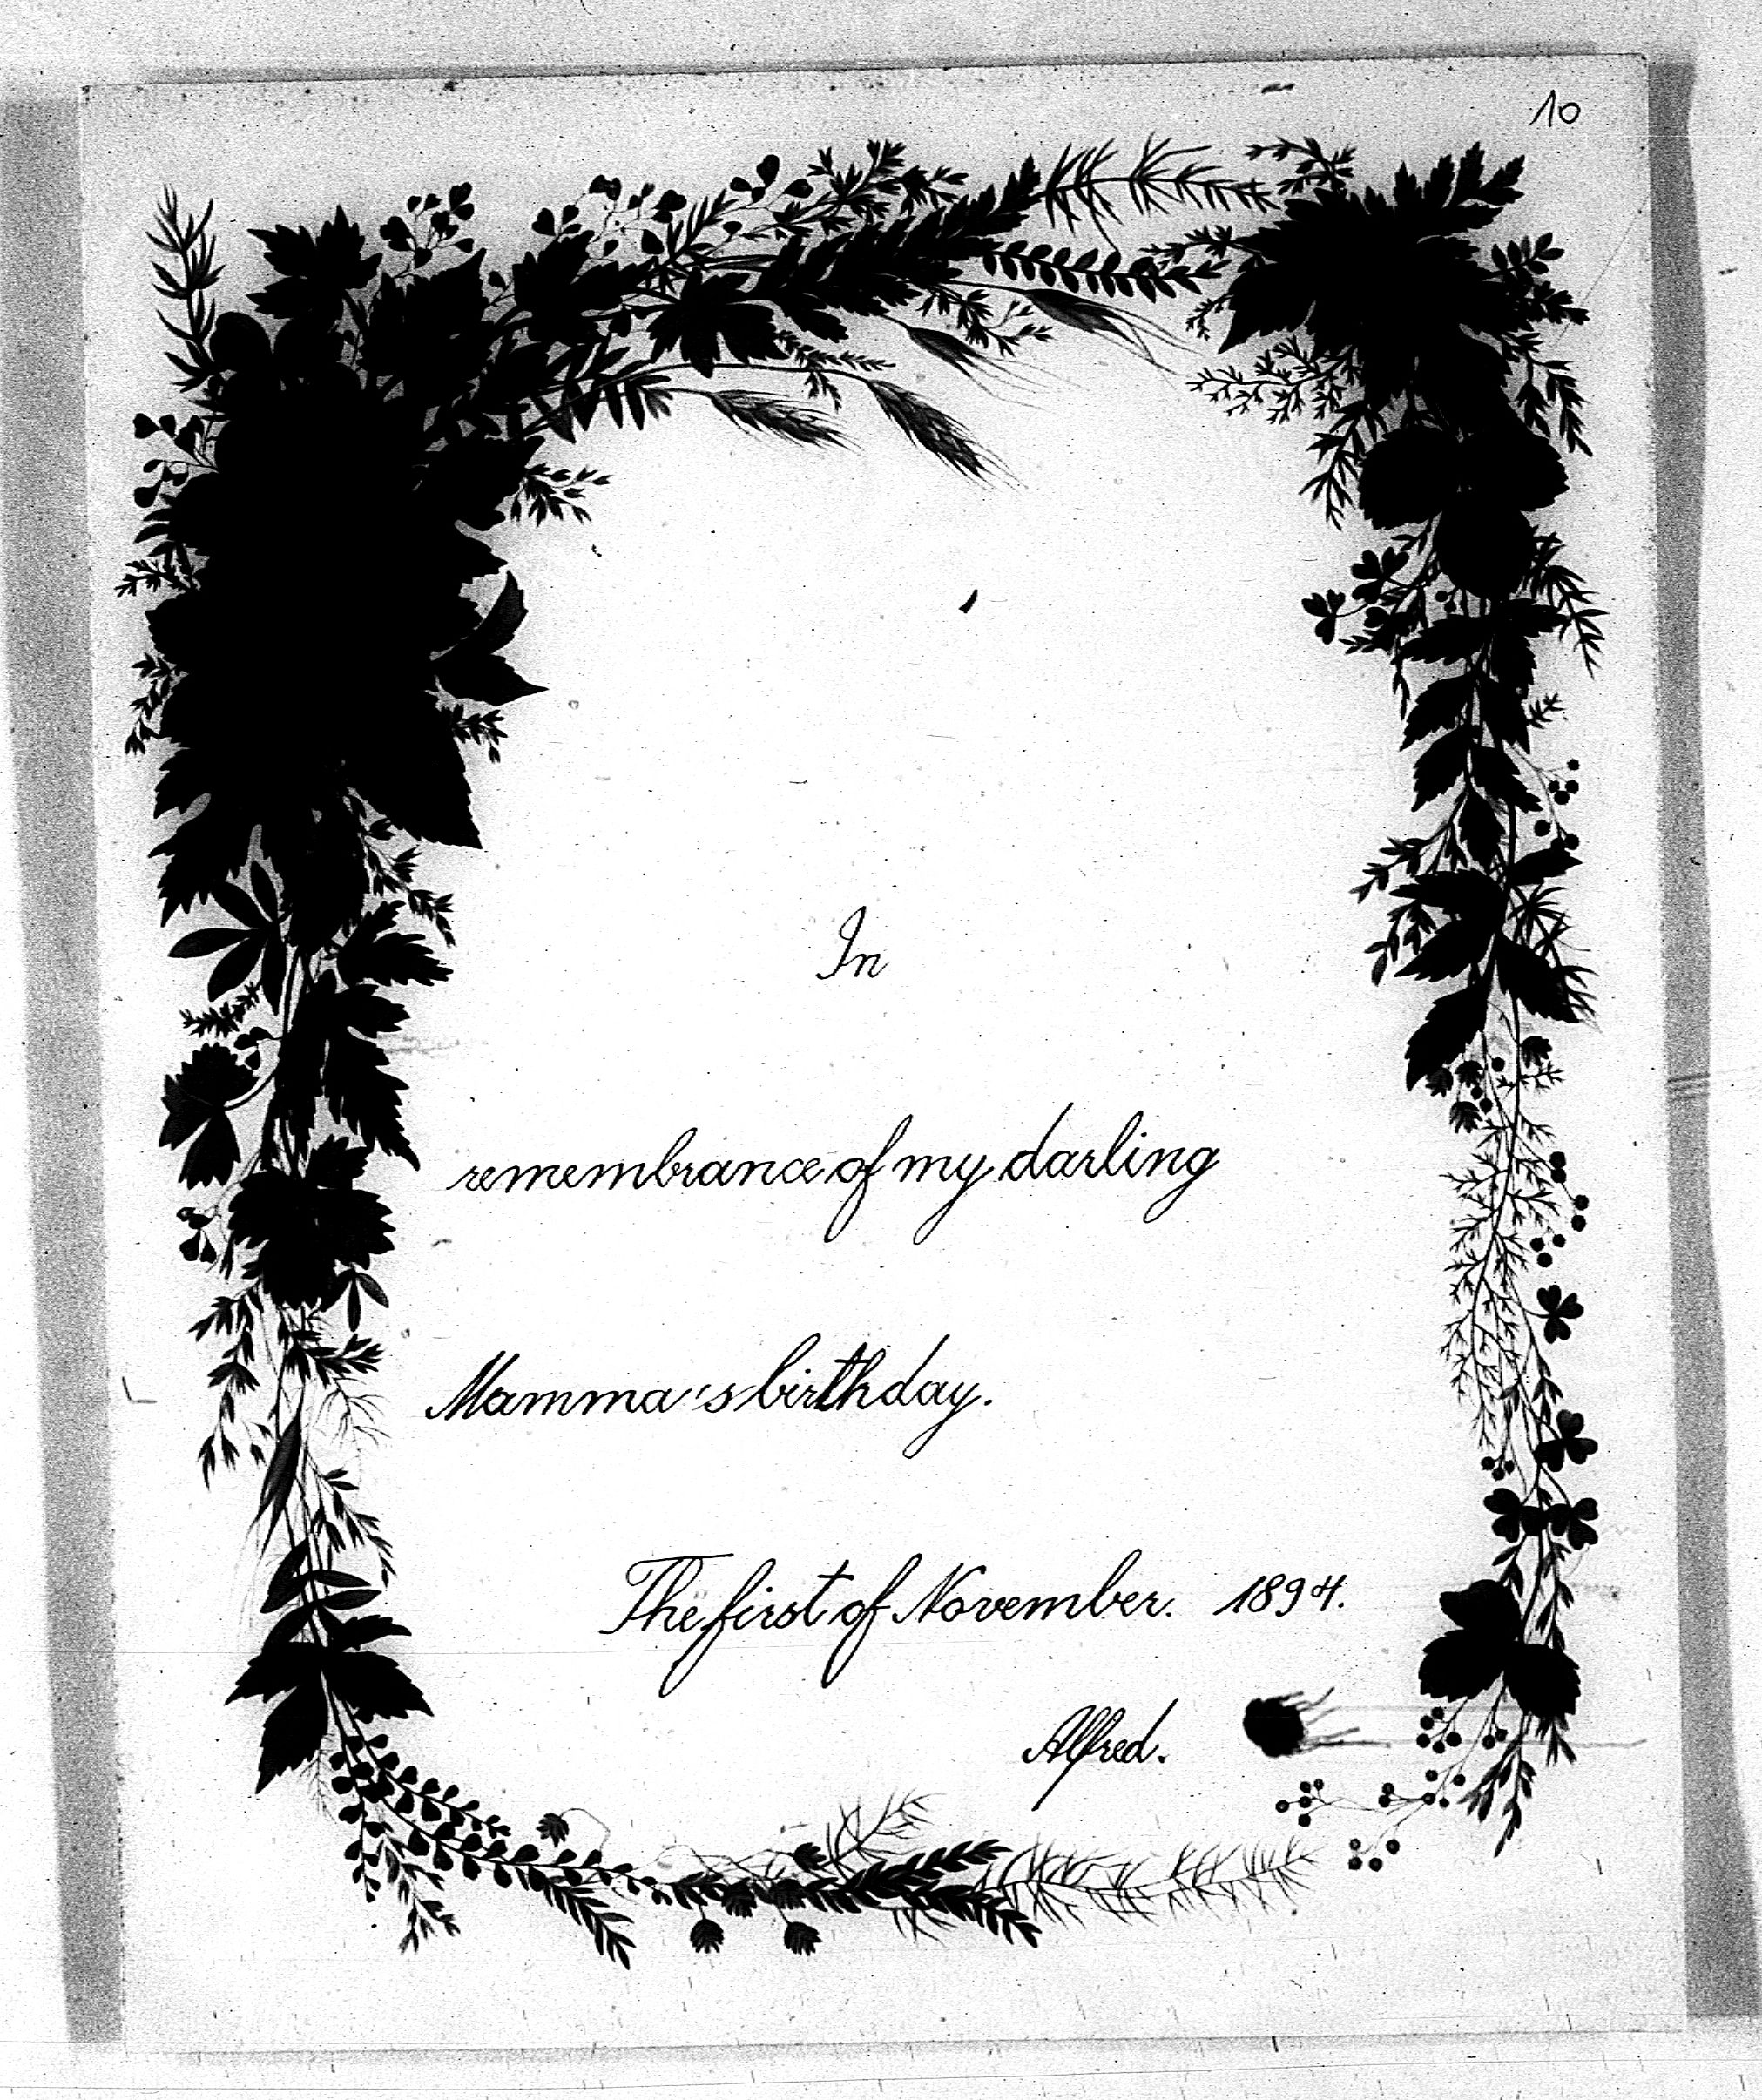 10
In
remembrance of my darling
Mamma's birthday.
The first of November. 1894.
Alfred.